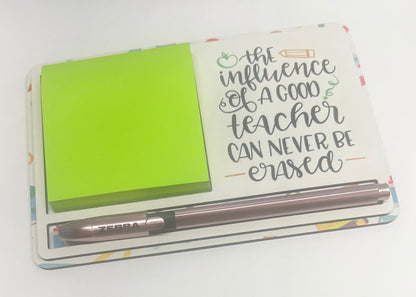 the
influence
of A GOOD
teacher
CAN NEVER BE
erased
ZEBRA